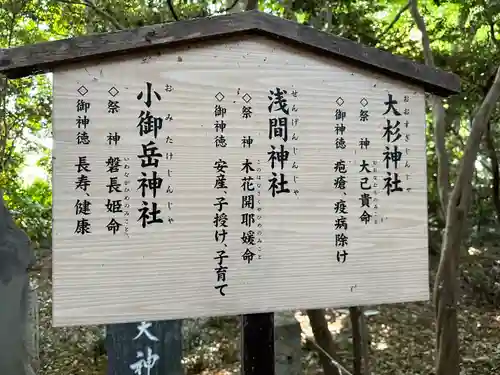 大杉神社
おおすぎじんじゃ
◇祭 神 大己貴命
◇御神徳 疱瘡、疫病除け
浅間神社
せんげんじんじゃ
◇祭 神 木花開耶媛命
このはなさくやひめのみこと
◇御神徳 安産、子授け、子育て
小御岳神社
おみたけじんじゃ
◇祭 神 磐長姫命
いわながひめのみこと
◇御神徳 長寿、健康
大神